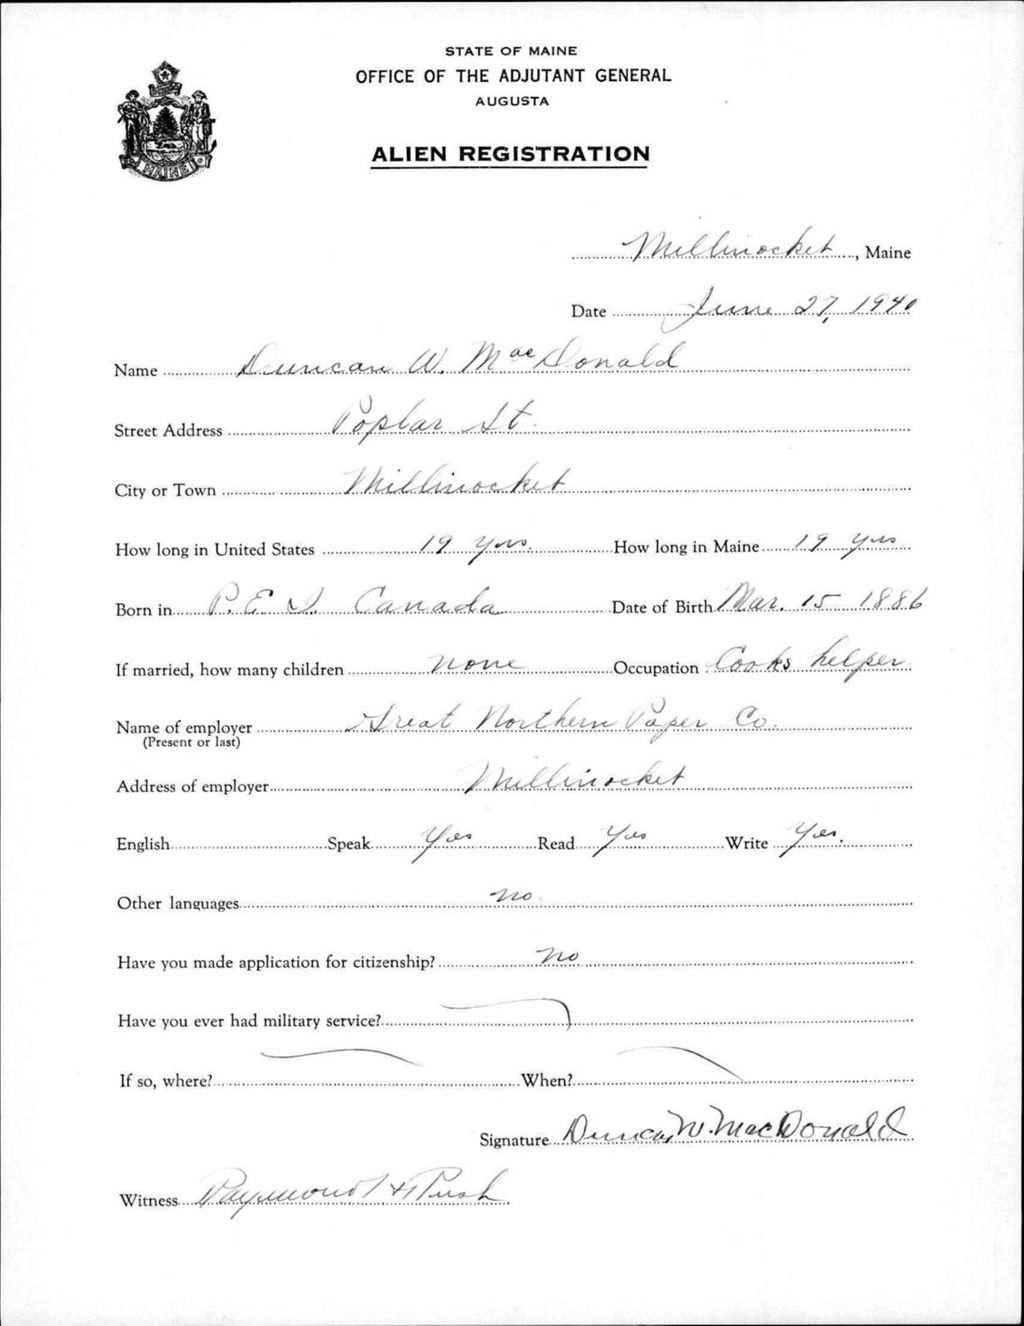 STATE OF MAINE
OFFICE OF THE ADJUTANT GENERAL
AUGUSTA
ALIEN REGISTRATION
MAINE
Millinocket, Maine
Date June 27, 1940
Name Duncan W. MacDonald
Street Address Poplar St.
City or Town Millinocket
How long in United States 19 yrs. How long in Maine 19 yrs
Born in P. E. I. Canada Date of Birth Mar. 15 1886
If married, how many children none Occupation Cooks helper
Name of employer Great Northern Paper Co.
(Present or last)
Address of employer Millinocket
English Speak Yes Read Yes Write Yes.
Other languages no.
Have you made application for citizenship? no
Have you ever had military service?
If so, where? When?
Signature Duncan W. MacDonald
Witness Raymond H